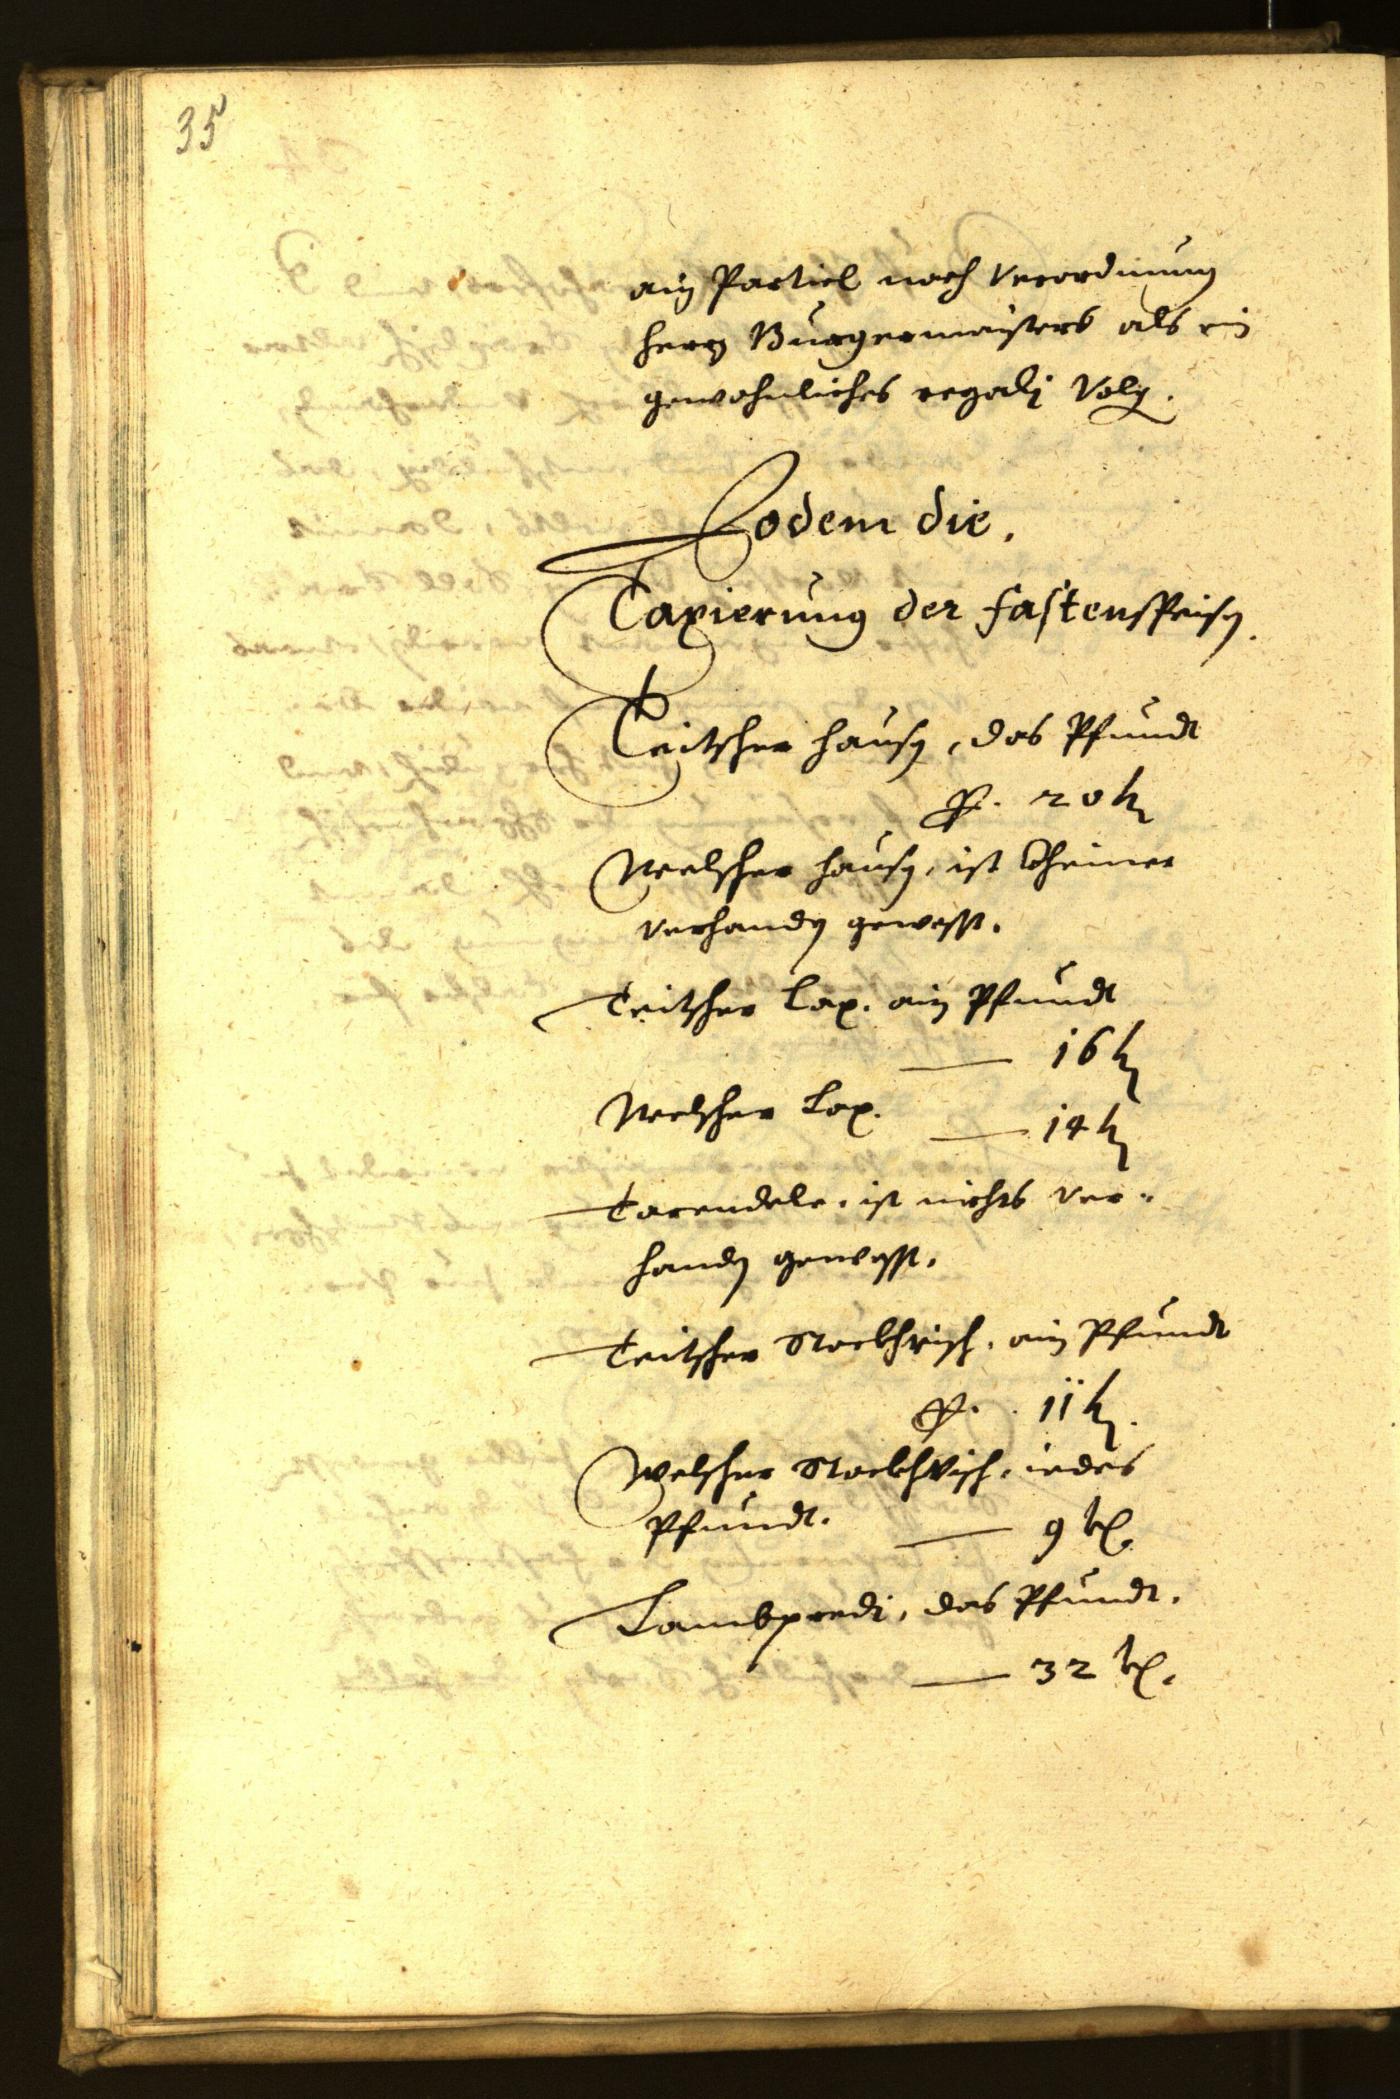 35
ain Partiel nach Verordnung
herrn Burgermaisters als ein
gewohnliches regalj Volg.
Eodem die.
Taxierung der fastenspeisen.
Teitscher hausen, das Pfundt
Pr. 20 kr
Welscher hausen, ist kheiner
verhanden gewesst.
Teitscher Lax. ain Pfundt
— 16 kr
Welscher Lax.
— 14 kr
Tarendele. ist nichts ver-
handen gewesst.
Teitscher Stockhvisch. ain Pfundt
Pr. 11 kr.
Welscher Stockhvisch. iedes
Pfundt. — 9 kr.
Lambpredi, das Pfundt.
— 32 kr.